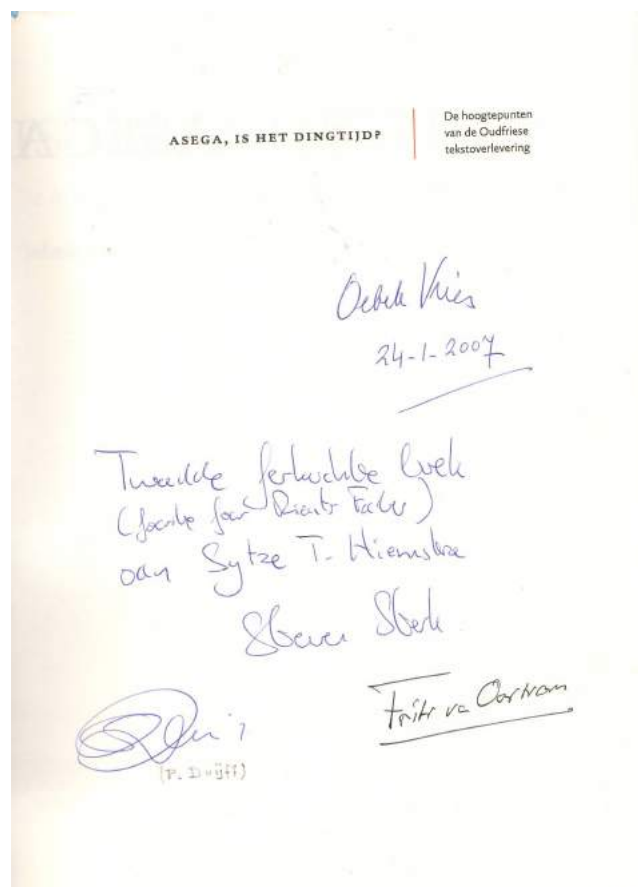 ASEGA, IS HET DINGTIJD?
De hoogtepunten
van de Oudfriese
tekstoverlevering
Oebele Vries
24-1-2007
Twadde ferkochte boek
(foar
oan Sytze T. Hiemstra
Steven Sterk
Frits va Oostrom
(P. Duijff)